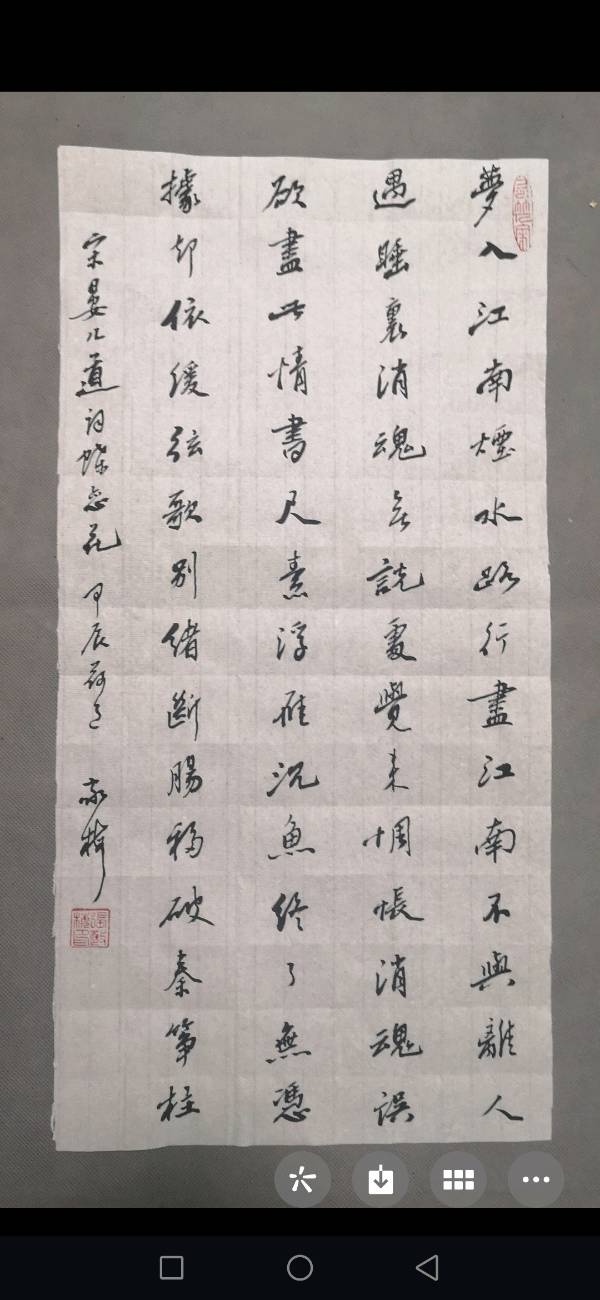 夢入江南煙水路行盡江南不與離人
遇睡裏消魂无說處覺来惆悵消魂誤
欲盡此情書尺素浮雁沉魚終了無憑
據却依緩弦歌別緒斷腸移破秦箏柱
宋晏几道詞蝶恋花 甲辰